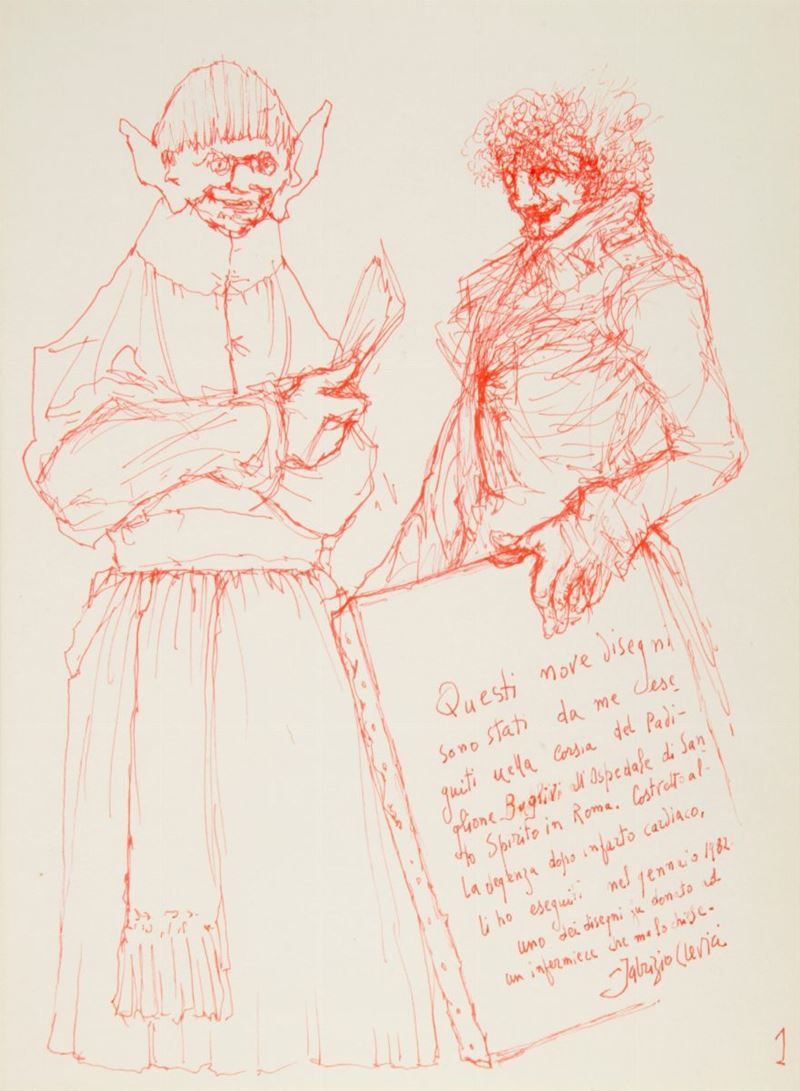 Questi nove disegni
sono stati da me ese-
guiti nella corsia del Padi-
glione Baglivi all'Ospedale di San
to Spirito in Roma. Costretto al-
la degenza dopo infarto cardiaco,
li ho eseguiti nel gennaio 1982.
uno dei disegni fu donato ad
un infermiere che me lo chiese-
Fabrizio Clerici
1